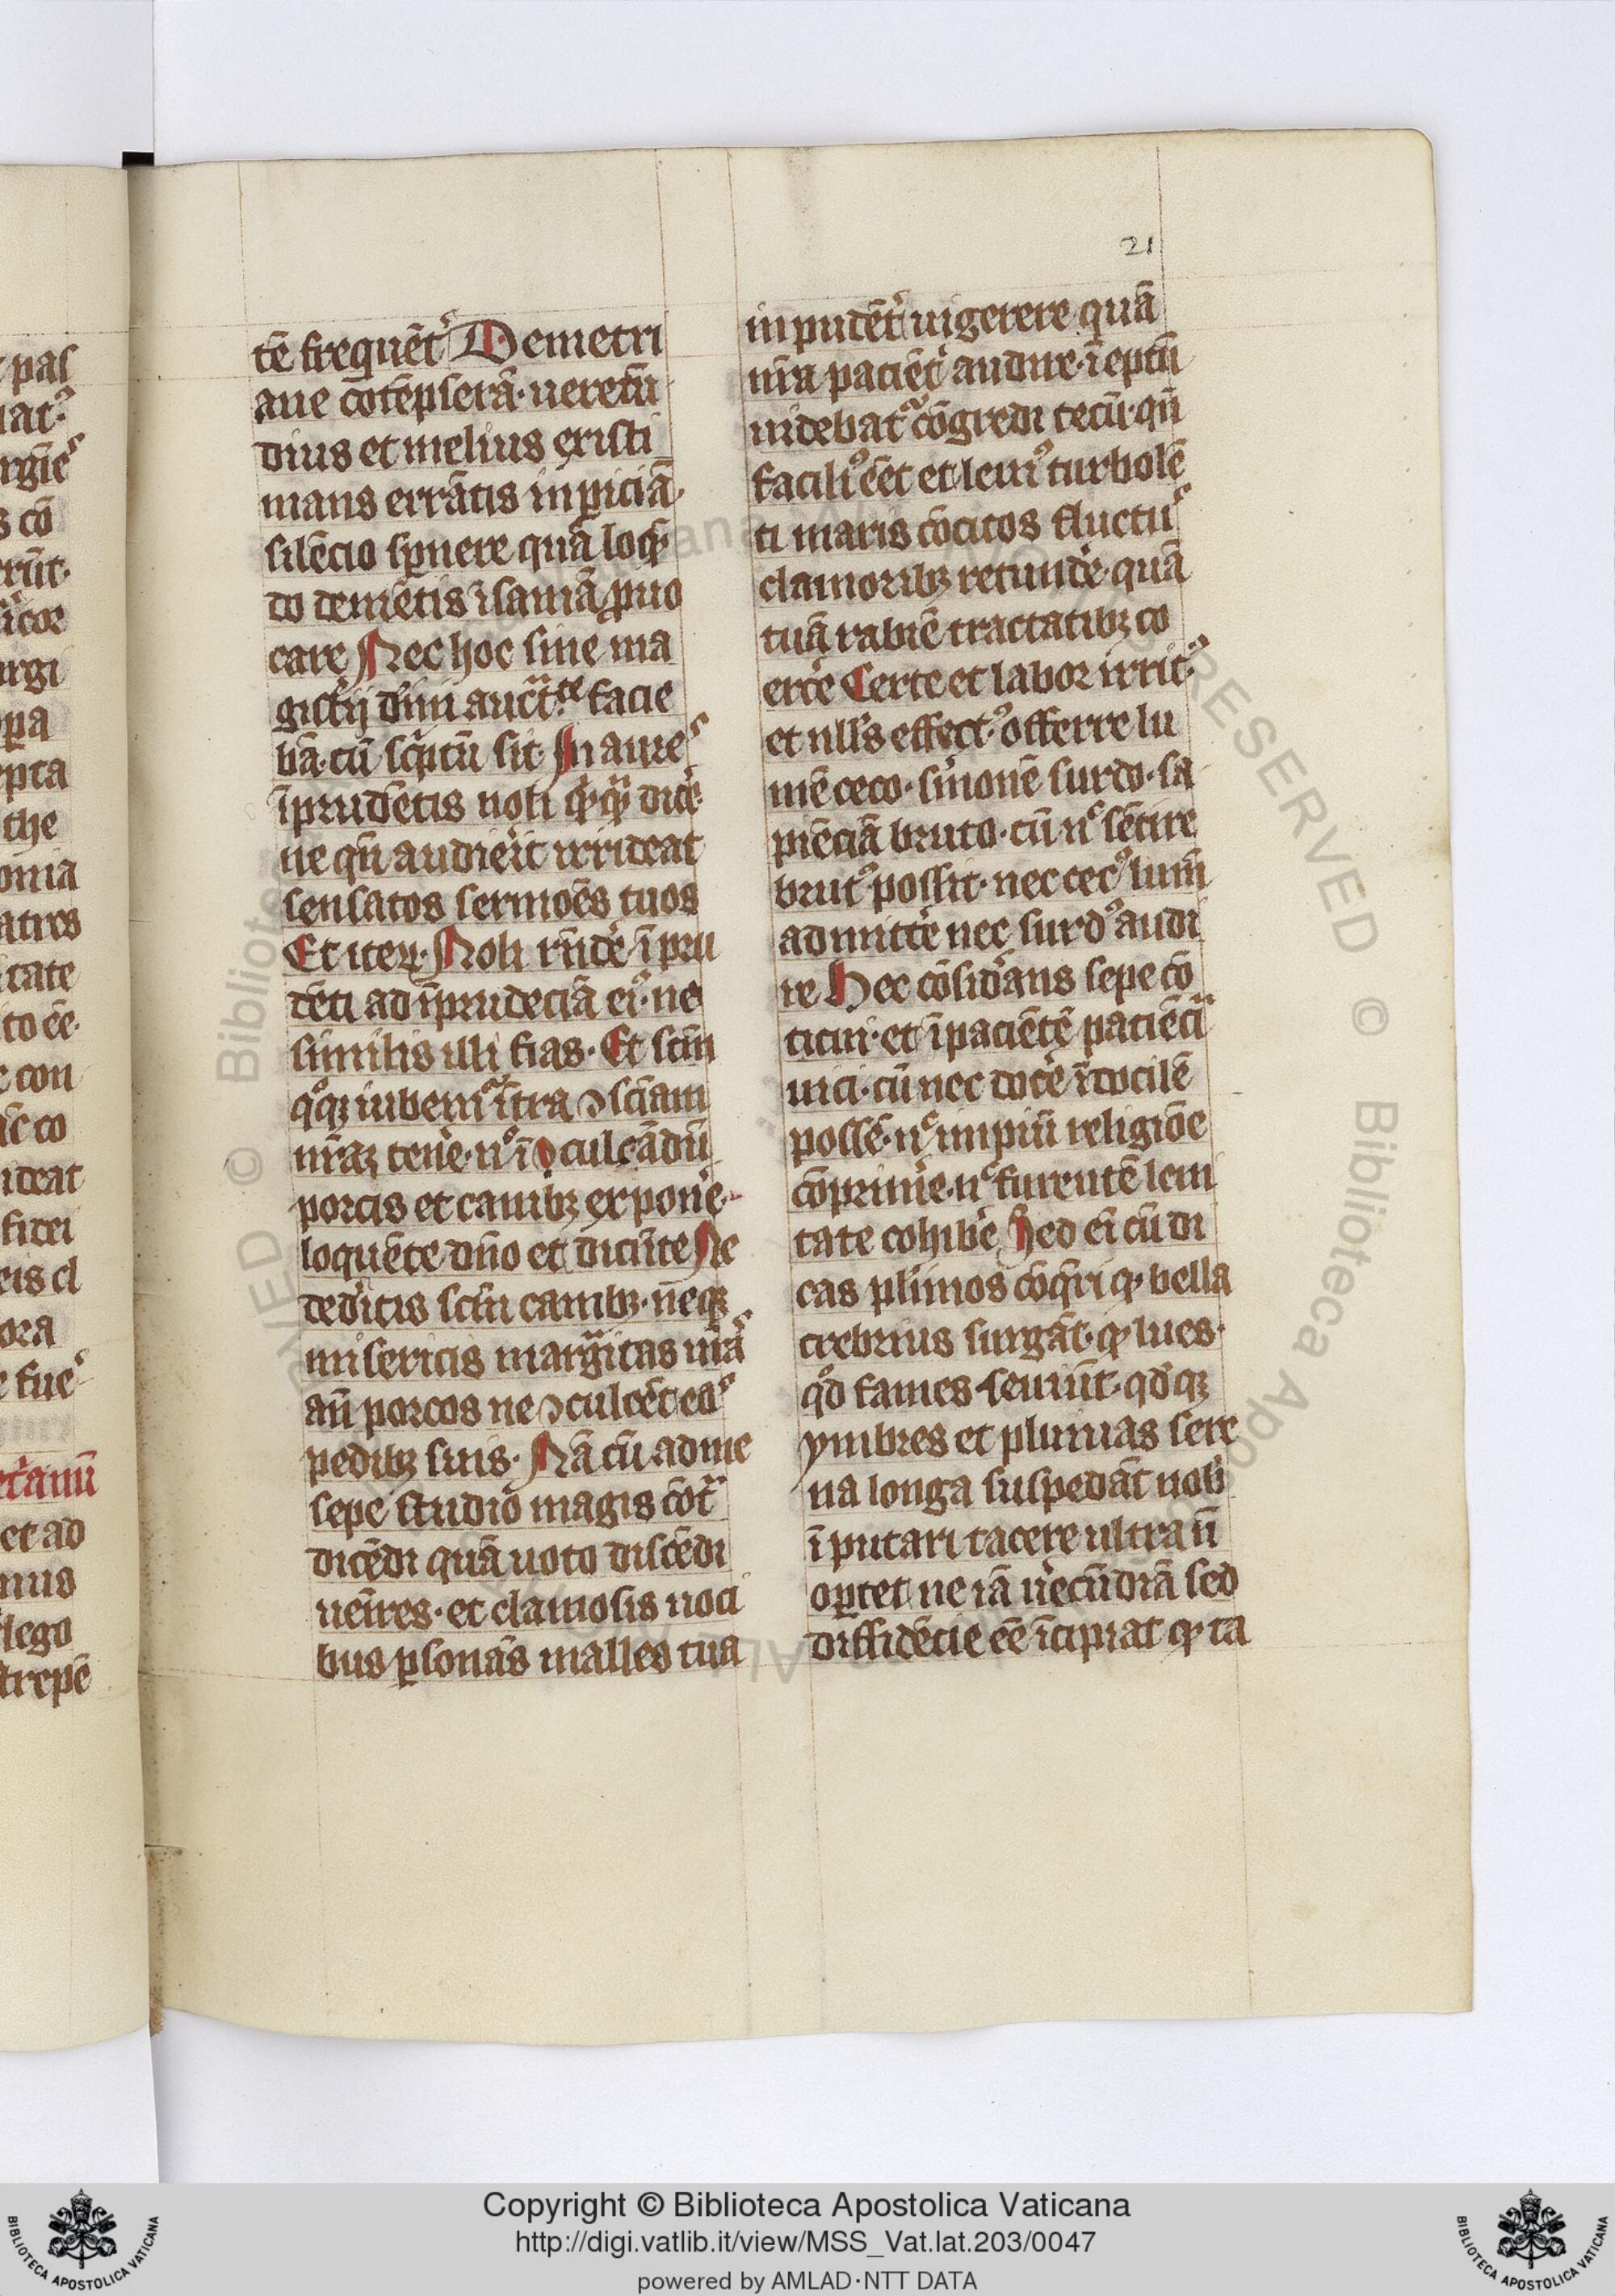 21
tē frequēt᷒ Demetri
ane cōtēpserā· ueretū
dius et melius existi
mans errātis inꝑiciā
silēcio sꝑnere quā loqn̄
do demētis īsaniā ꝓuo
care Nec hoc sine ma
gistīj dīuī auctᵗᵉ facie
bā· cū scͥptū sit· In aures
īprudētis noli qͥcqͣ dicē·
ne qn̄ audierit irrideat
sensatos sermōes tuos
Et iteꝝ· Noli rn̄dē īpru
dēti ad īprudēciā eiꝰ· ne
similis illi fias· Et scm̄
qͦꝗꝫ iubemᷣ ītra ꝯsciam
nrāꝫ tenē· nͦ īoculcādū
porcis et canibꝫ exponē·
loquēte dn̄o et dicēte Ne
dedītis scm̄ canibꝫ· neqꝫ
miseritis margͣitas urās
an̄ porcos ne ꝯculcēt eas
pedibꝫ suis· Nā cū ad me
sepe studio magis cōtͣ
dicēdi quā uoto discēdi
uenīres· et clamosis uoci
bus ꝑsonās malles tua
inpudēt᷒ uigerere quā
nr̄a paciēt᷒ audire· īeptū
uidebatᷣ cōgredi tecū· qn̄
faciliꝰ eēt et leuiꝰ turbolē
ti maris cōcitos fluctus
clamoribꝫ retundē· quā
tuā rabiē tractatibꝫ co
ercē Certe et labor irritꝰ
et nllꝰs effectꝰ offerre lu
mē ceco· sm̄onē surdo· sa
piēciā bruto· cū nͨ sētire
brutꝰ possit· nec cecꝰ lum̄
admittē nec surdꝰ audi
re Hec cōsidᷓans sepe cō
ticui· et īpaciētē paciēcia
uici· cū nec docē īdocilē
possē· nͨ impiū religiōe
cōprimē· nͨ furentē leni
tate cohibē Sed ei cū di
cas plīmos cōqͥri qꝫ bella
crebrius surgāt· qꝫ lues·
qͦd fames seuiūt· qdꝗꝫ
ymbres et pluuias sere
na longa suspēdāt nob̄
īputari tacere ultra n̄
oꝑtet ne iā uecūdiā sed
diffidēcie eē īcipiat qꝫ ta
pas
uatꝰ
s cō
erūt·
icor
urgi
opa
epta
the
onia
atres
itate
to eē·
e con
ideat
fidei
eis cl
ora
e fues
et ad
mus
lego
trepē
Copyright © Biblioteca Apostolica Vaticana
http://digi.vatlib.it/view/MSS_Vat.lat.203/0047
powered by AMLAD·NTT DATA
BIBLIOTECA APOSTOLICA VATICANA
BIBLIOTECA APOSTOLICA VATICANA